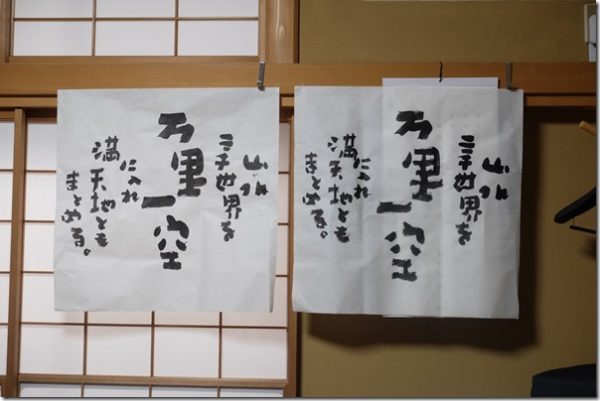 山水
三千世界を
万里一空
に入れ
満天地とも
まとめる。
山水
三千世界を
万里一空
に入れ
満天地とも
まとめる。